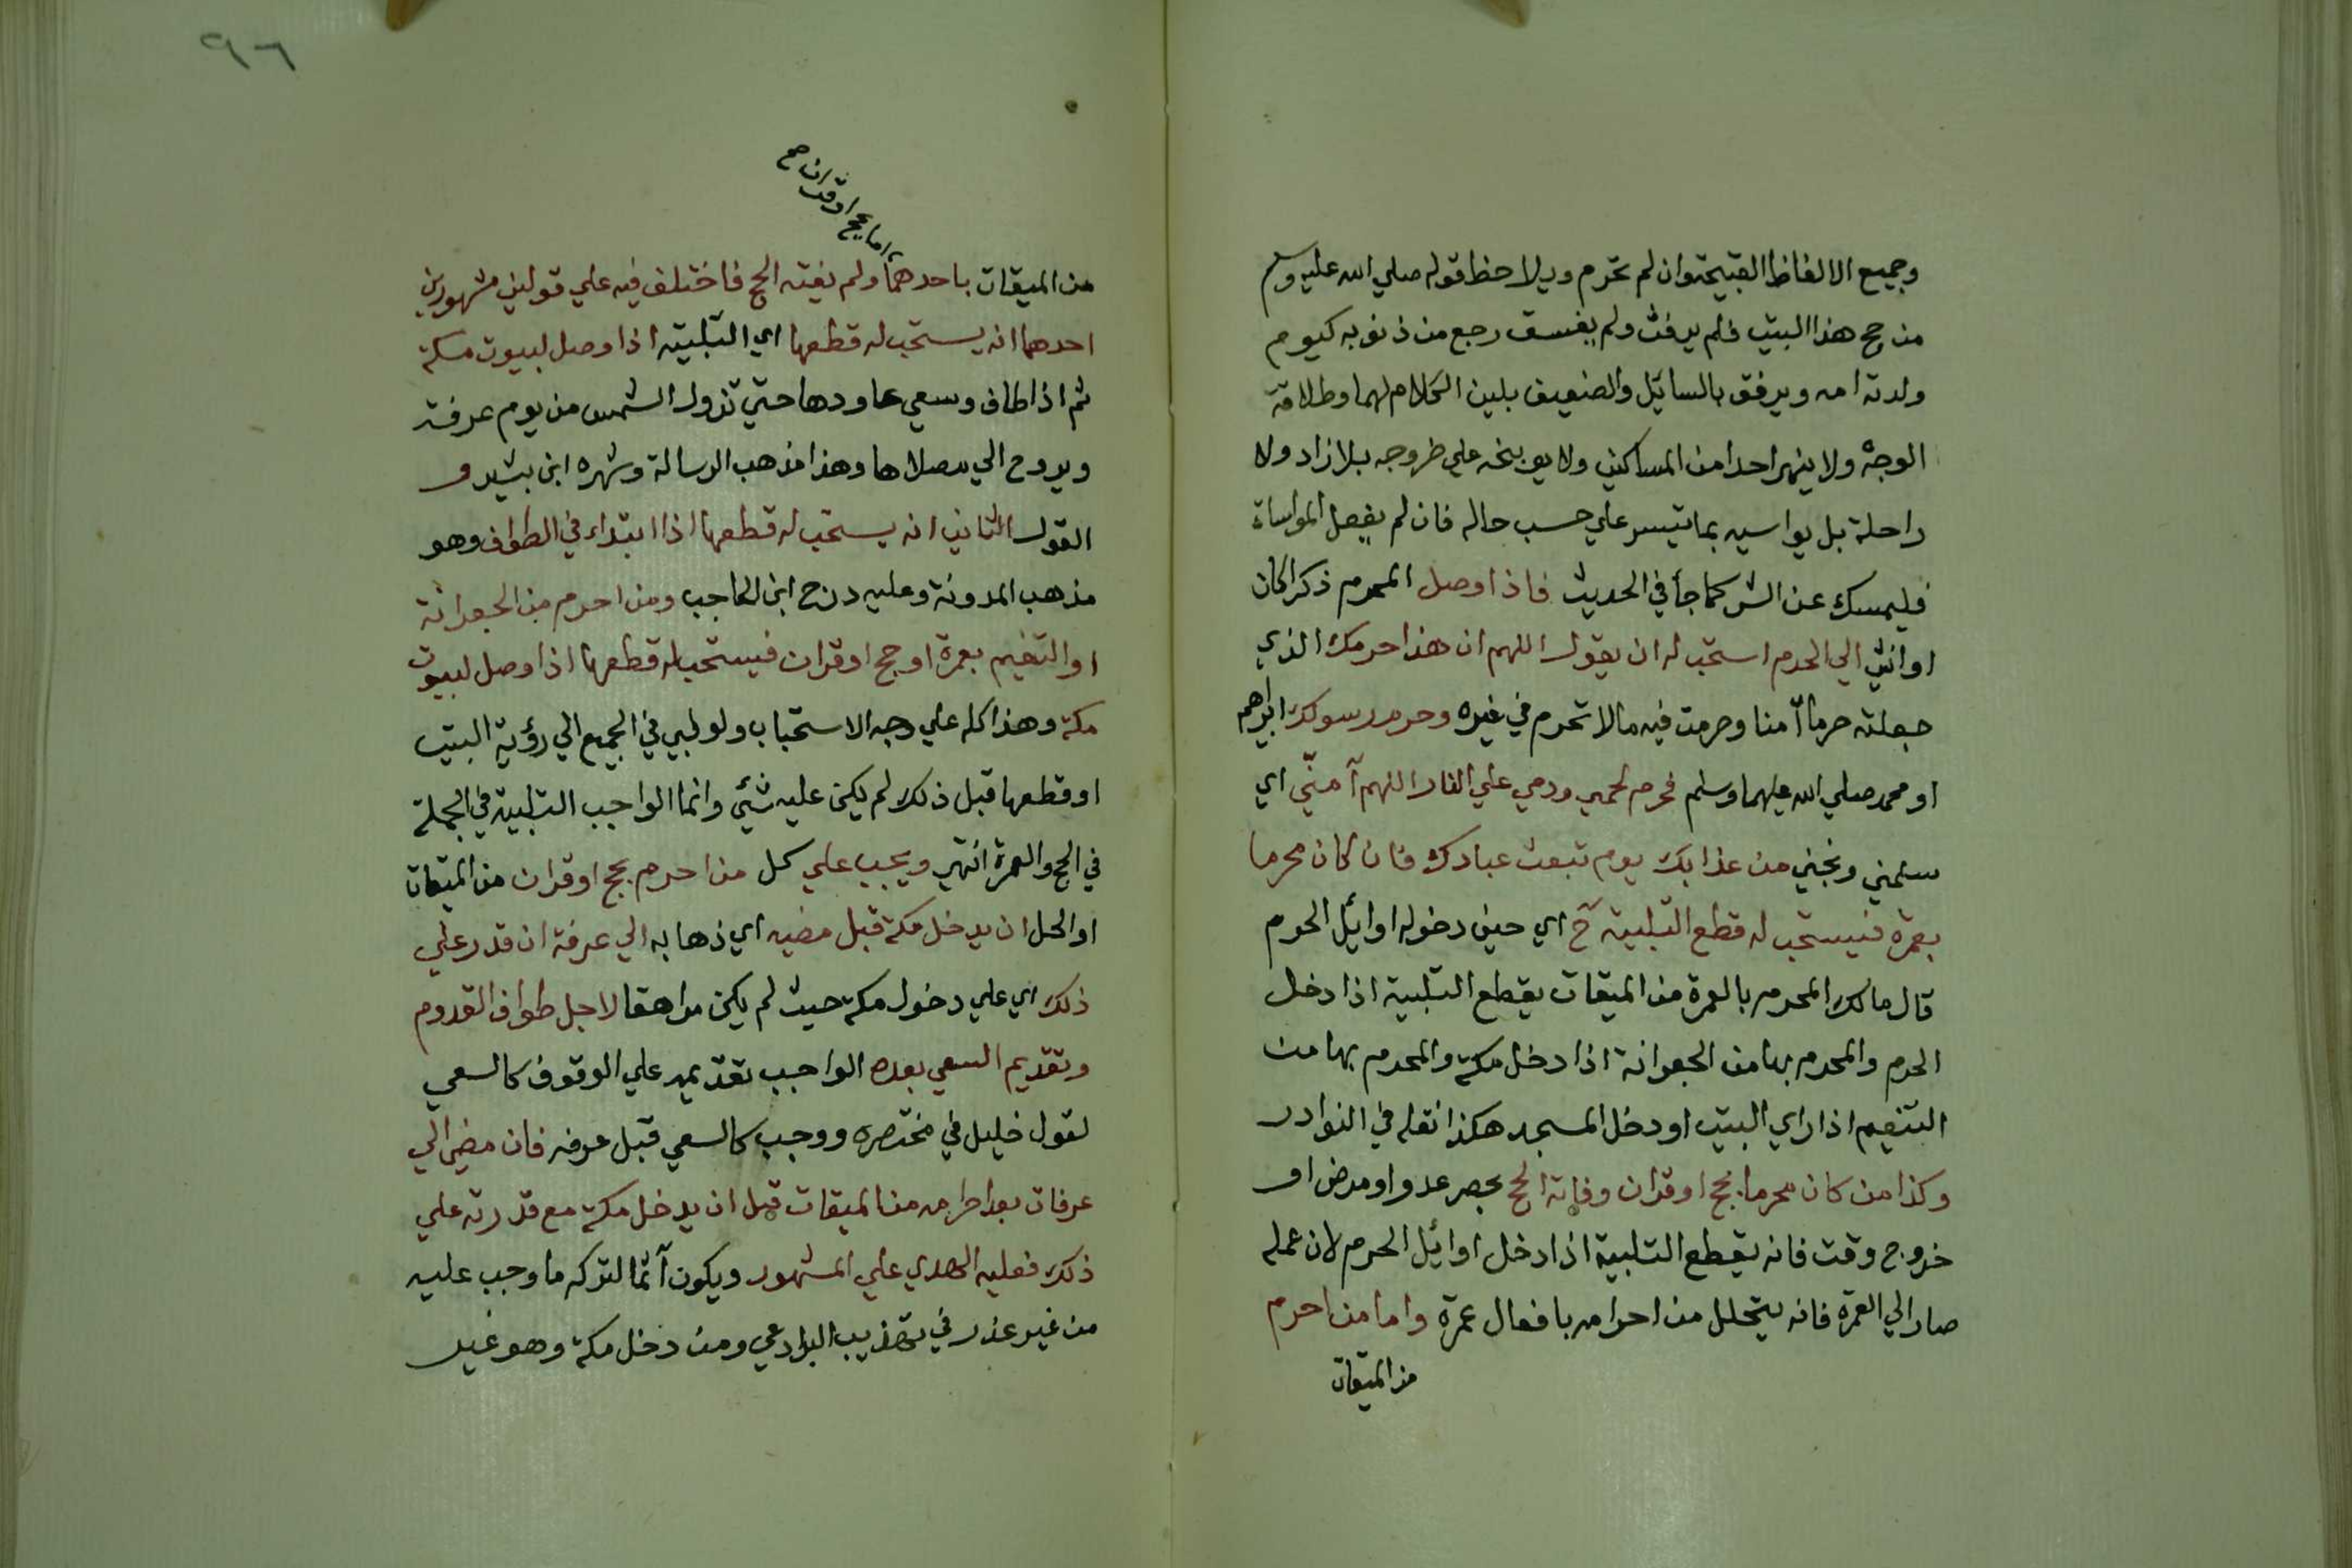 وجميع الالفاظ القبيحة وان لم تحرم ويلاحظ قوله صلي الله عليه وسلم
من حج هذا البيت فلم يرفث ولم يفسق رجع من ذنوبه كيوم
ولدته امه ويرفق بالسائل والضعيف بلين الكلام لهما وطلاقة
الوجه ولا ينهر احدا من المساكين ولا يوبخه علي خروجه بلا زاد ولا
راحلة بل يواسيه بما تيسر علي حسب حاله فان لم يفعل المواساة
فليمسك عن الشر كما جأ في الحديث فاذا وصل المحرم ذكرا كان
او انثي الي الحرم استحب له ان يقول اللهم ان هذا حرمك الذي
جعلته حرما آمنا وحرمت فيه مالا تحرم في غيره وحرم رسولك ابراهيم
او محمد صلي الله عليهما وسلم فحرم لحمي ودمي علي النار اللهم آمنّي اي
سلمني ونجني من عذابك يوم تبعث عبادك فان كان محرما
بعمرة فيستحب له قطع التلبية ح اي حين دخوله اوائل الحرم
قال مالك المحرم بالعمرة من الميقات يقطع التلبية اذا دخل
الحرم والمحرم بها من الجعرانة اذا دخل مكة والمحرم بها من
التنعيم اذا راي البيت او دخل المسجد هكذا نقله في النوادر
وكذا من كان محرما بحج او قران وفاته الحج بحصر عدو او مرض او
خروج وقت فانه يقطع التلبية اذا دخل اوائل الحرم لان عمله
صار الي العمرة فانه يتحلل من احرامه بافعال عمرة واما من احرم
من الميقات
٩٦
اما بحج او قران صح
من الميقات باحدهما ولم يفته الحج فاختلف فيه علي قولين مشهورين
احدهما انه يستحب له قطعها اي التلبية اذا وصل لبيوت مكة
ثم اذا طاف وسعي عاودها حتي تزول الشمس من يوم عرفة
ويروح الي مصلاها وهذا مذهب الرسالة وشهره ابن بشير و
القول الثاني انه يستحب له قطعها اذا ابتداء في الطواف وهو
مذهب المدونة وعليه درج ابن الحاجب ومن احرم من الجعرانة
او التنعيم بعمرة او حج او قران فيستحب له قطعها اذا وصل لبيوت
مكة وهذا كله علي وجه الاستحباب ولو لبي في الجميع الي رؤية البيت
او قطعها قبل ذلك لم يكن عليه شئ وانما الواجب التلبية في الجملة
في الحج والعمرة انتهي ويجب علي كل من احرم بحج او قران من الميقات
او الحل ان يدخل مكة قبل مضيه اي ذهابه الي عرفة ان قدر علي
ذلك اي علي دخول مكة حيث لم يكن مراهقا لاجل طواف القدوم
وتقديم السعي بعده الواجب تقديمه علي الوقوف كالسعي
لقول خليل في مختصره ووجب كالسعي قبل عرفه فان مضي الي
عرفات بعد احرامه من الميقات قبل ان يدخل مكة مع قدرته علي
ذلك فعليه الهدي علي المشهور ويكون آثما لتركه ما وجب عليه
من غير عذر في تهذيب البرادعي ومن دخل مكة وهو غير